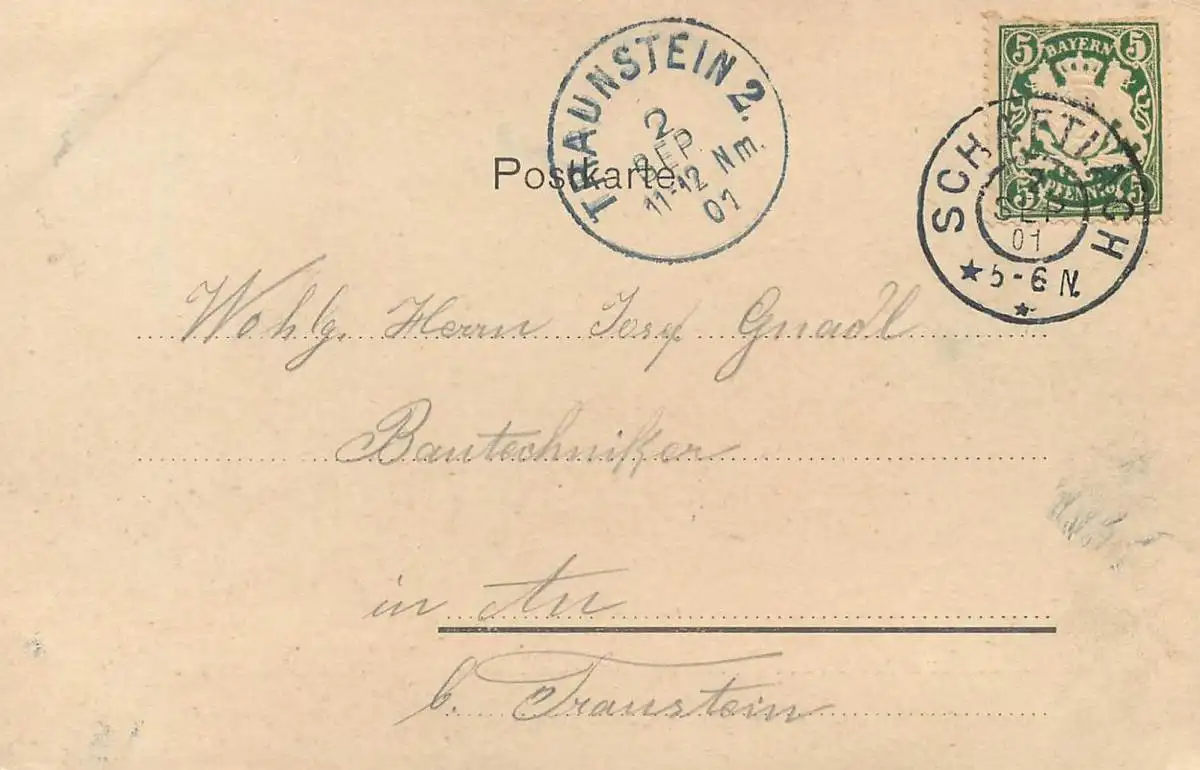 TRAUNSTEIN 2.
2
SEP.
11-12 Nm.
01
5 BAYERN 5
5 PFENNIG 5
SCHAFTLACH
2
SEP
01
5-6 N.
Postkarte.
Wohlg. Herrn Josef Gnadl
Bautechniker
in Au
b. Traunstein